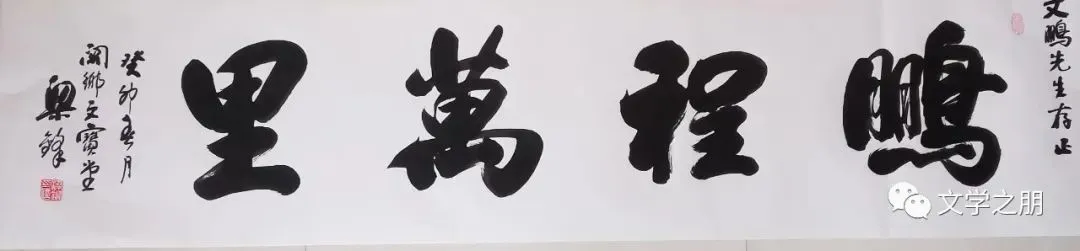 文鵬先生存正
鵬程萬里
癸卯春月
闵鄉王寶堂
梁鋒
文学之朋